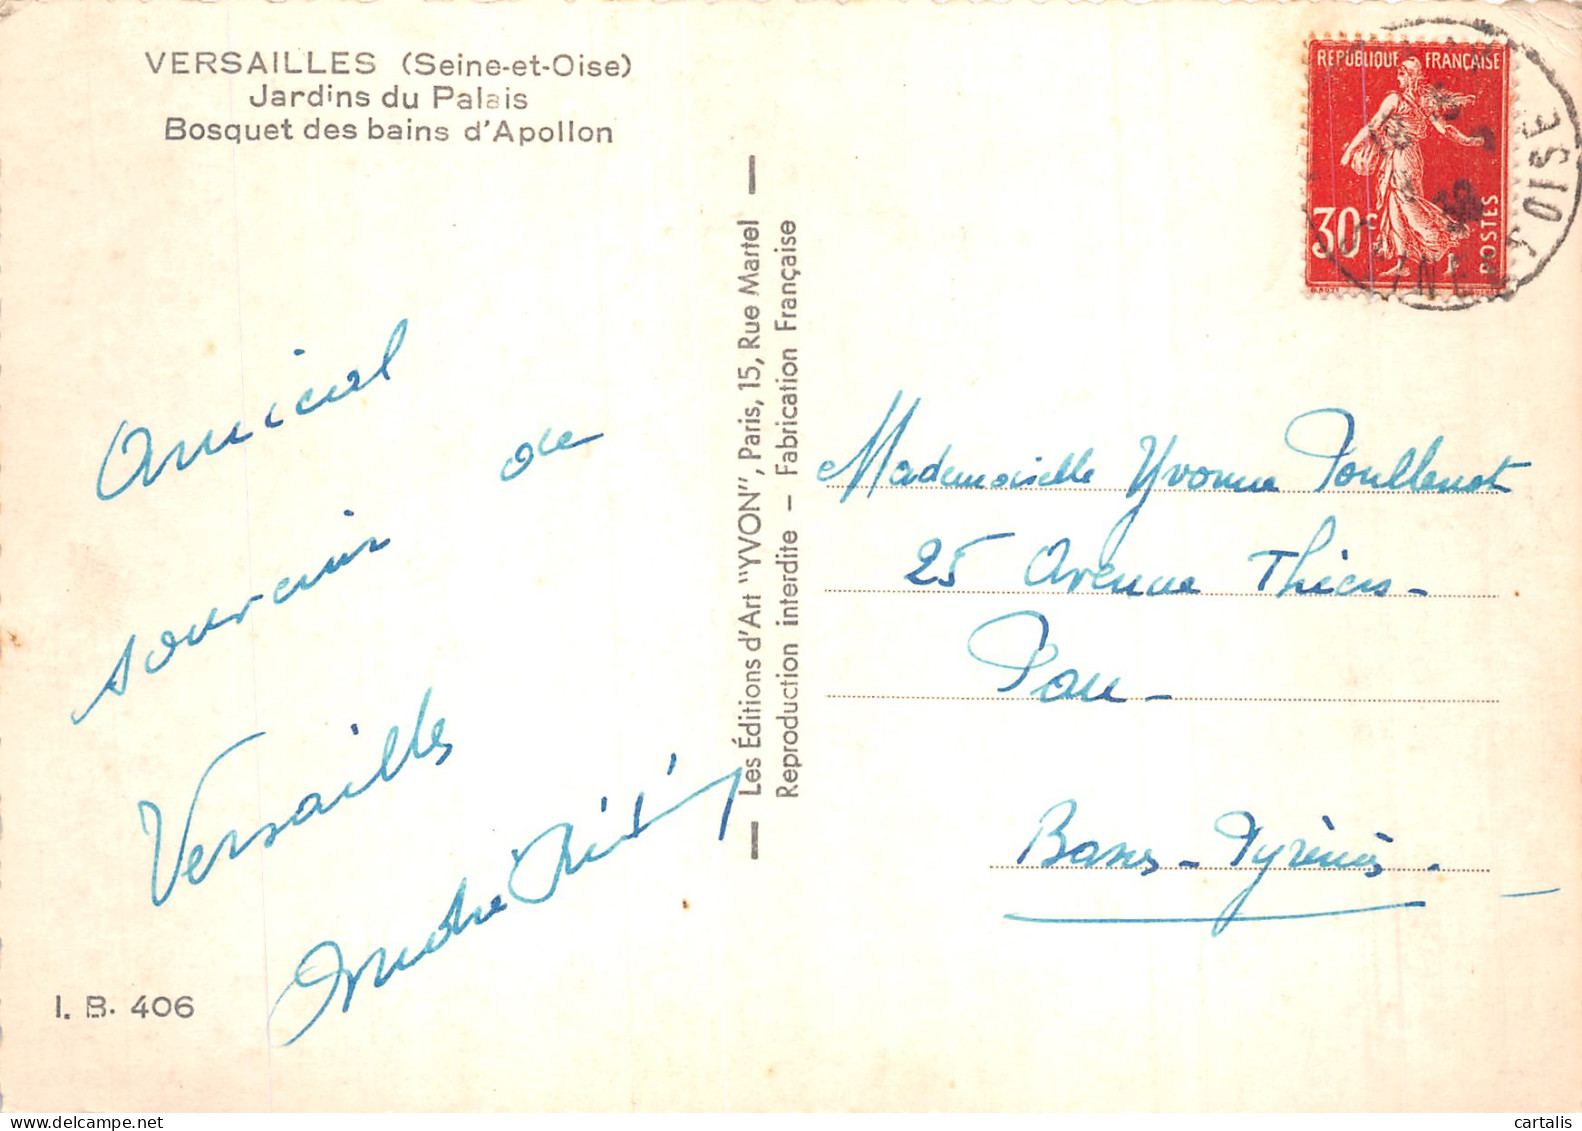 VERSAILLES (Seine-et-Oise)
Jardins du Palais
Bosquet des bains d'Apollon
REPUBLIQUE FRANÇAISE
30c
POSTES
OISE
Les Éditions d'Art "YVON", Paris, 15, Rue Martel
Reproduction interdite – Fabrication Française
Amical
de
souvenir
Versailles
André
Mademoiselle Yvonne Poullenot
25 Avenue Thiers-
Pau-
Basses-Pyrénées.
I. B. 406
cartalis
www.delcampe.net